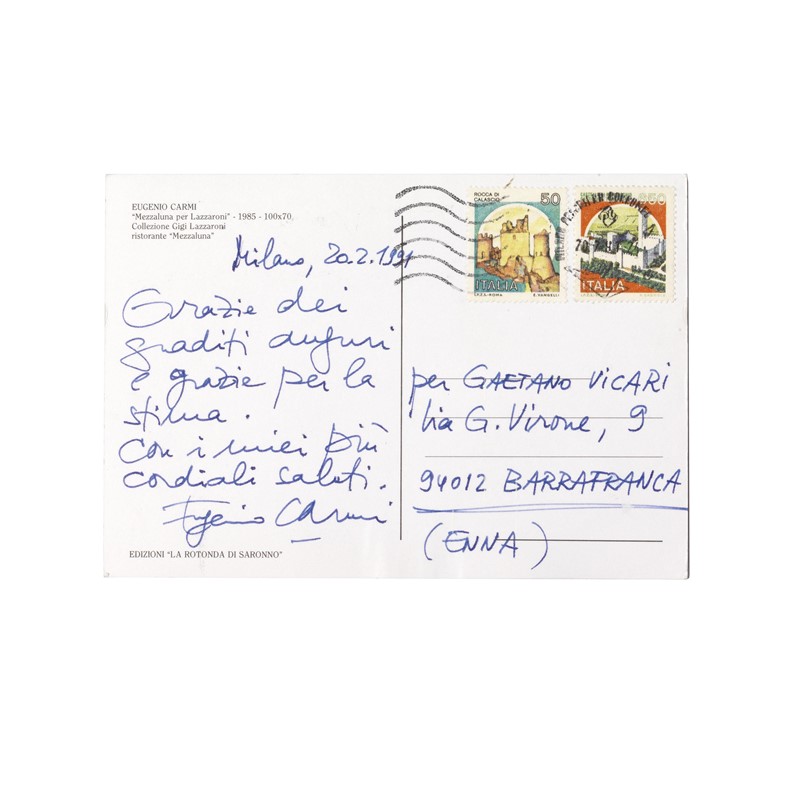 EUGENIO CARMI
"Mezzaluna per Lazzaroni" - 1985 - 100x70.
Collezione Gigi Lazzaroni
ristorante "Mezzaluna"
Milano, 20.2.1991
Grazie dei
graditi auguri
e grazie per la
stima.
con i miei più
cordiali saluti.
Eugenio Carmi
EDIZIONI "LA ROTONDA DI SARONNO"
ROCCA DI
CALASCIO
50
ITALIA
I.P.Z.S.-ROMA E. VANGELLI
ITALIA
per GAETANO VICARI
Via G. Virone, 9
94012 BARRAFRANCA
(ENNA)